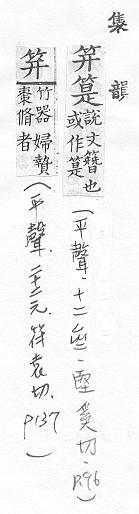 集韻
笄 說文簪也
或作
(平聲.十二齊.堅奚切.p.96)
笄 竹器婦贄
棗脩者
(平聲.二十二元.符袁切.p137)